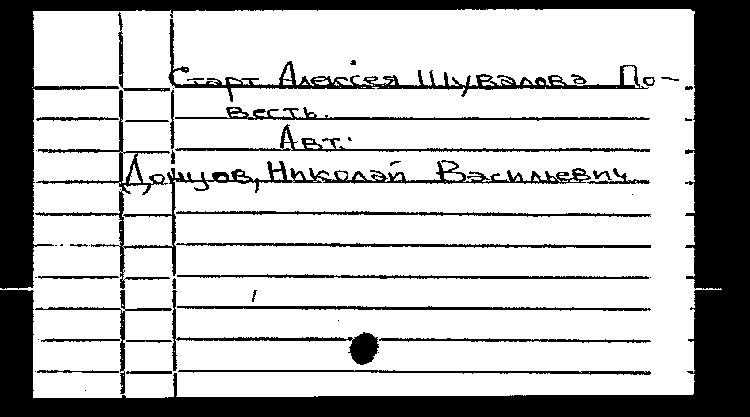 Старт Алексея Шувалова По-
весть.
Авт.:
Донцов, Николай Васильевич